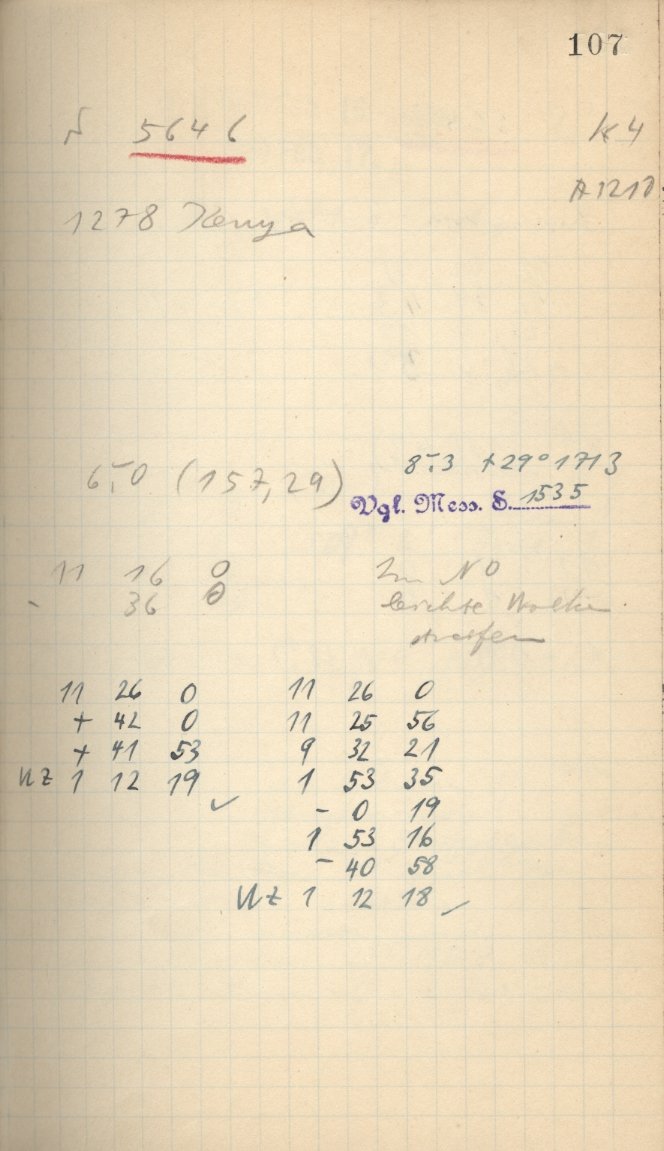 107
5646
K4
A1217
1278 Kenya
6,0 (157,29)
8,3 +29° 1713
Vgl. Mess. S. 1535
11 16 0
- 36 0
Im NO
leichte Wolken
streifen
11 26 0
+ 42 0
+ 41 53
WZ 1 12 19 ✓
11 26 0
11 25 56
9 32 21
1 53 35
- 0 19
1 53 16
- 40 58
WZ 1 12 18